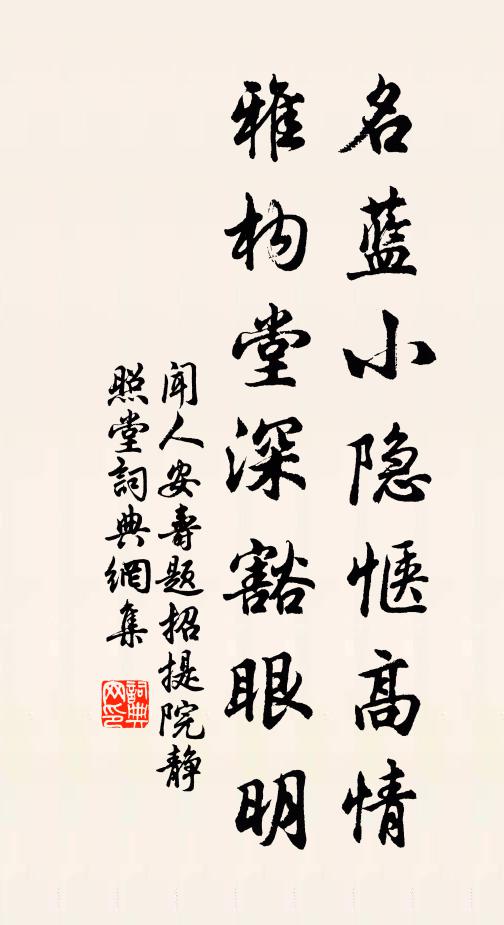 名蓝小隐惬高情
雅构堂深豁眼明
闻人安寿题招提院静
照堂词典网集
词典网印